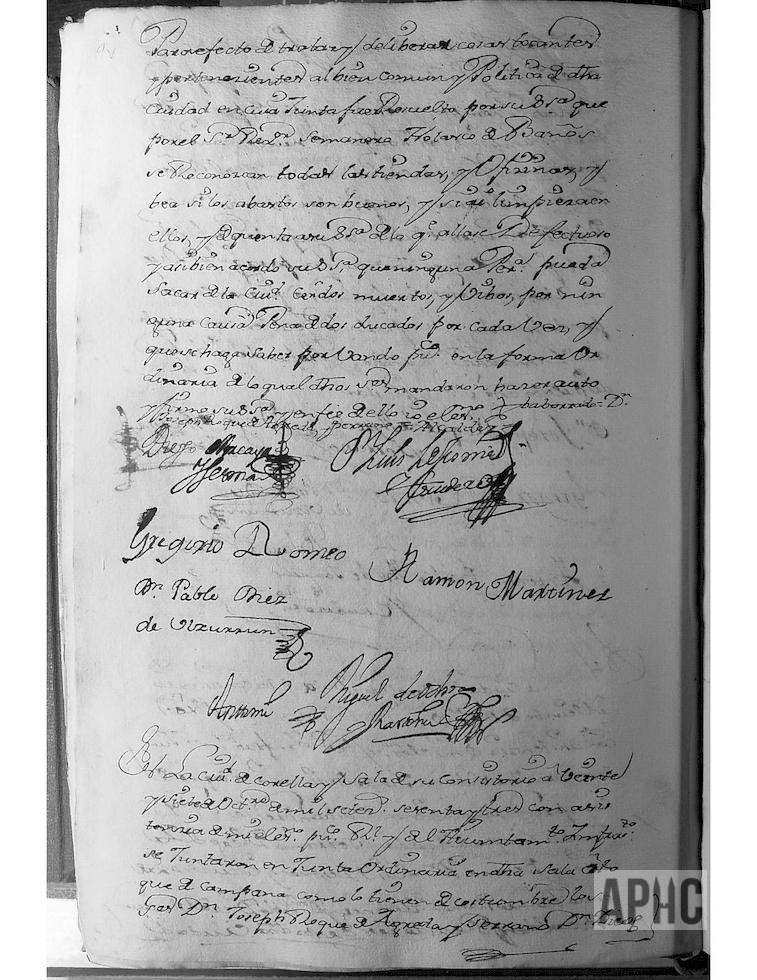 Para efecto de tratar y deliberar cosas tocantes
y pertenecientes al bien comun y Politica de dha
ciudad en cuia Junta fue Resuelto por su Sª que
por el Sr Rexor Semanero Nolasco de Baños
se Reconozcan todas las tiendas, y Oficinas, y
bea si los abastos son buenos, y si ai limpieza en
ellos, y de quenta a su Sª de lo q. allase Defectuoso
y asi bien acordo su Sª que ninguna Perª pueda
Sacar de la Ciud Cerdos muertos, y Vibos, por nin
guna Causa Pena de dos ducados por cada Vez, y
que se haga saber por Vando pco en la forma Or
dinaria de lo qual dhos Sres mandaron hazer auto
y firmo su Sª y en fee de ello io el Esno
Joseph Roque de Agreda Alcalde
Diego
Luis
Gregorio Romeo
Ramon Martinez
Dn Pablo Diez
de Ulzurrun
Antemi
Miguel de
En La Ciud de Corella y Sala de su Consistorio a Veinte
y Siete de Octre de mil Setezs sesenta y tres con asis
tencia de mi el Esno pco Rl y del Aiuntamto Infraesto
se Juntaron en Junta Ordinaria en dha Sala a to
que de Campana como lo tienen de costumbre los
Sres Dn Joseph Roque de Agreda y Serrano Dn Diego
APHC